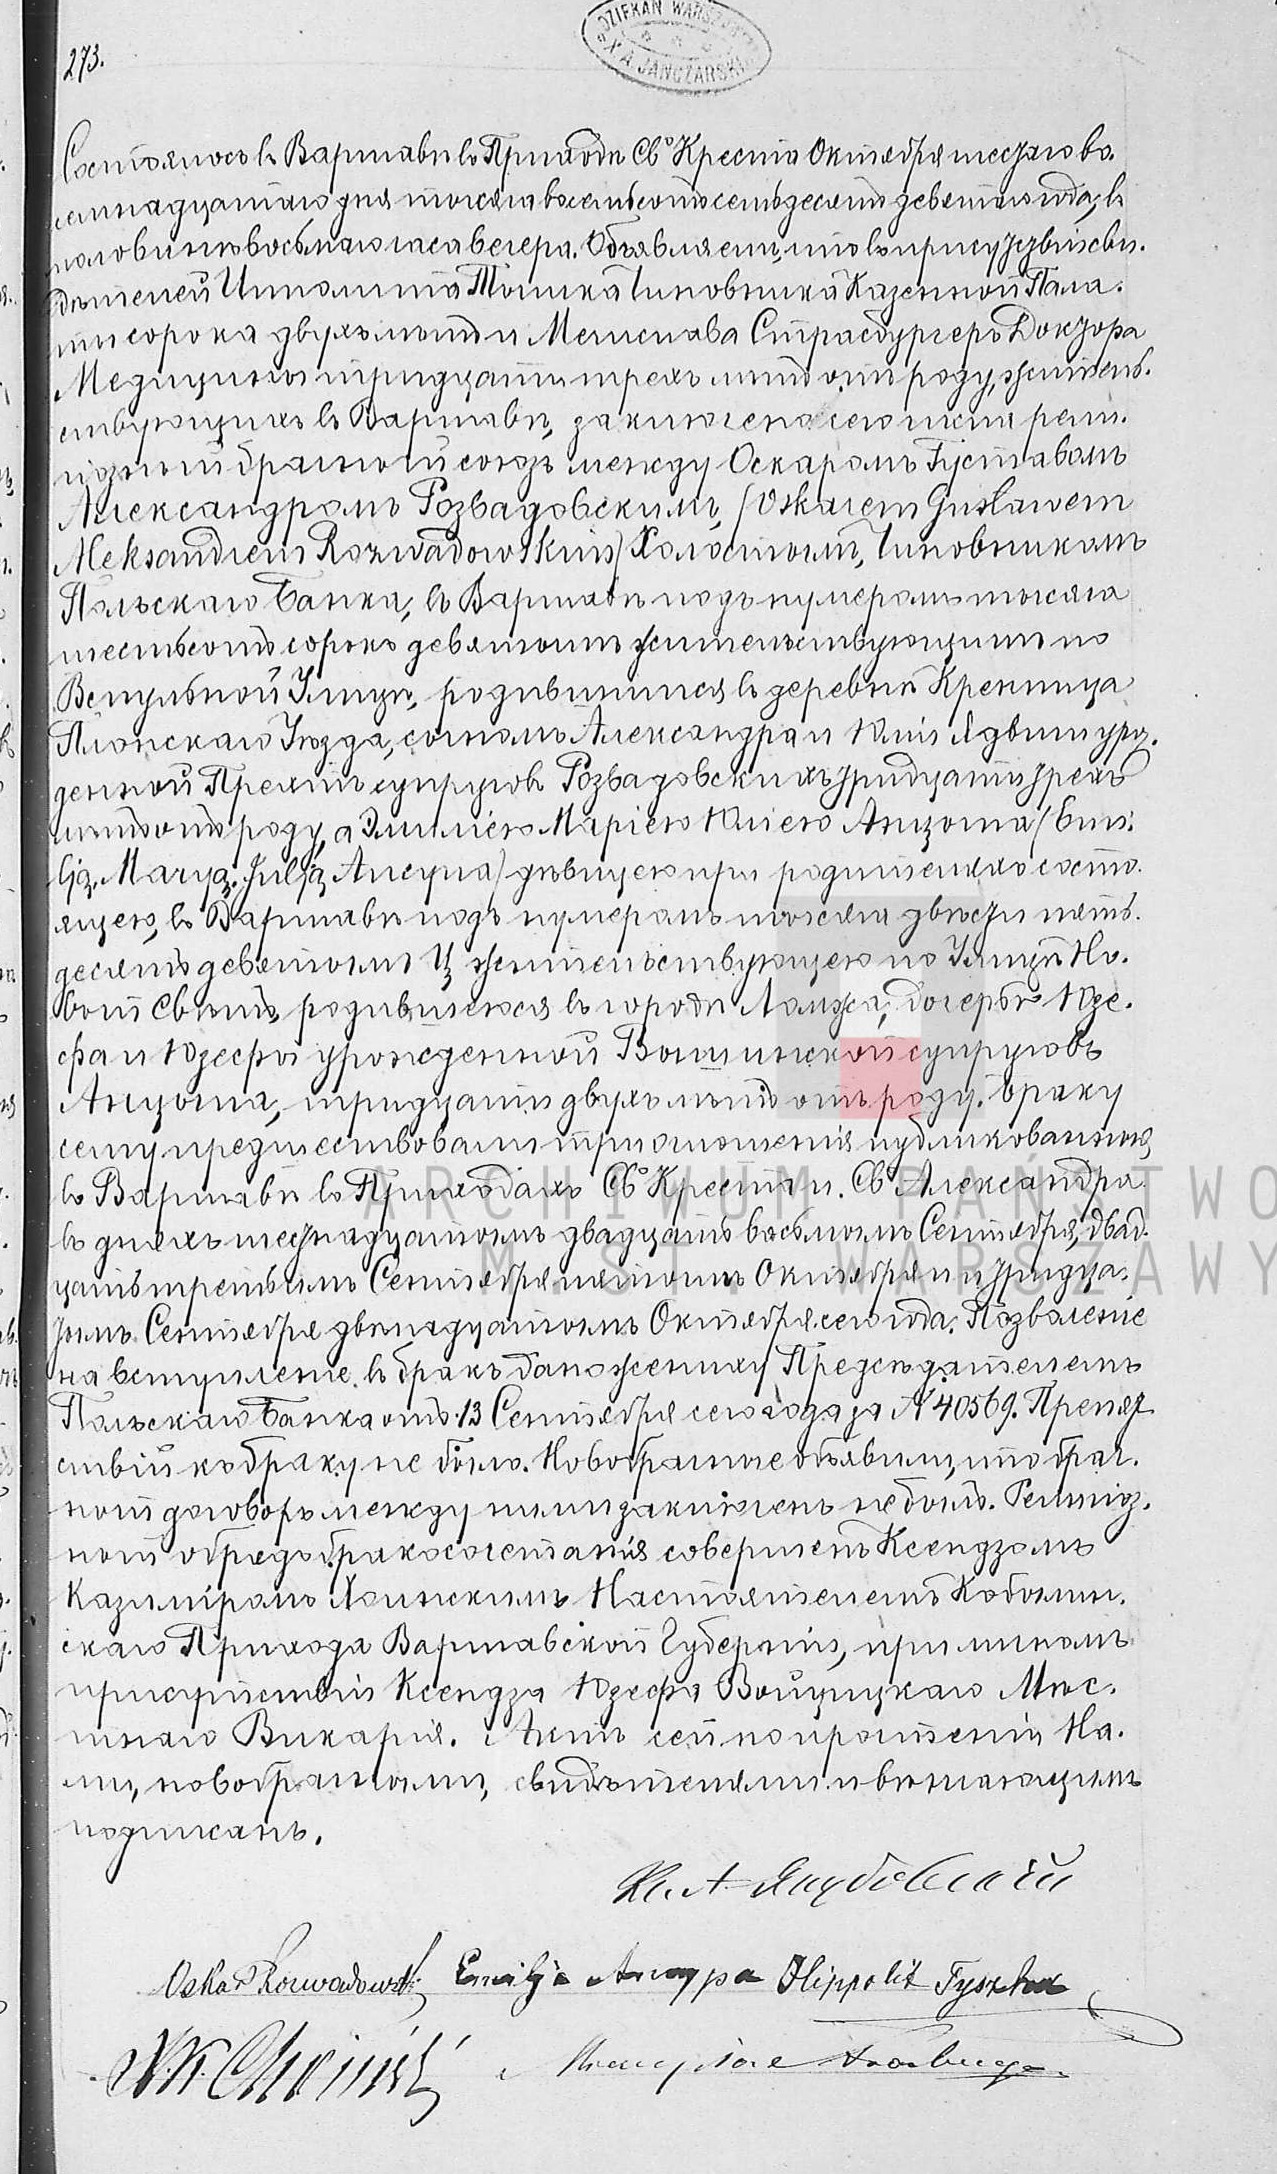 DZIEKAN WARSZAWSKI
X A JANCZARSKI
273.
Состоялось въ Варшавѣ въ Приходѣ Св. Креста Октября шестаго /во-
семнадцатаго/ дня тысяча восемьсотъ семьдесятъ девятаго года, въ
половинѣ восьмаго часа вечера. Объявляемъ, что въ присутствіи сви-
дѣтелей Ипполита Тышка Чиновника Казенной Пала-
ты сорока двухъ лѣтъ и Мечислава Страсбургеръ Доктора
Медицины тридцати трехъ лѣтъ отъ роду, житель-
ствующихъ въ Варшавѣ, заключенъ сего числа рели-
гіозный брачный союзъ между Оскаромъ Густавомъ
Александромъ Розвадовскимъ, /Oskarem Gustawem
Aleksandrem Rozwadowskim/ Холостымъ, Чиновникомъ
Польскаго Банка, въ Варшавѣ подъ нумеромъ тысяча
шестьсотъ сорокъ девятымъ жительствующимъ по
Вспульной Улицѣ, родившимся въ деревнѣ Крепица
Плонскаго Уѣзда, сыномъ Александра и Юліи Ядвиги урож-
денной супруговъ Розвадовскихъ тридцати трехъ
лѣтъ отъ роду, а Эмиліею Маріею Юліею Анцыпа /Emi-
lją, Maryą, Julją Ancypa/ дѣвицею при родителяхъ состо-
ящею, въ Варшавѣ подъ нумеромъ тысяча двѣсти пять-
десятъ девятымъ Ц жительствующею по Улицѣ Но-
вый Свѣтъ, родившеюся въ городѣ Ломжа, дочерью Юзе-
фа и Юзефы урожденной супруговъ
Анцыпа, тридцати двухъ лѣтъ отъ роду. Браку
сему предшествовали три оглашенія публикованныя
въ Варшавѣ въ Приходахъ Св. Креста и Св. Александра
въ дняхъ шестнадцатомъ двадцать восьмомъ Сентября, двад-
цать третьимъ Сентября пятомъ Октября и тридца-
томъ Сентября двѣнадцатомъ Октября сего года. Позволеніе
на вступленіе въ бракъ дано жениху Предсѣдателемъ
Польскаго Банка отъ 13 Сентября сего года за № 40569. Препят-
ствій къ браку не было. Новобрачные объявили, что брач-
ный договоръ между ними заключенъ не былъ. Религіоз-
ный обрядъ бракосочетанія совершенъ Ксендзомъ
Казиміромъ Хоинскимъ Настоятелемъ
скаго Прихода Варшавской Губерніи, при личномъ
присутствіи Ксендза Юзефа Войцицкаго Мѣс-
тнаго Викарія. Актъ сей по прочтеніи На-
ми, новобрачными, свидѣтелями и вѣнчающимъ
подписанъ.
Кс. А. Якубовскій
Oskar Rozwadowski Emilja Ancypa Hippolit Tyszka
X. K. Choiński
ARCHIWUM PAŃSTWO
M. ST. WARSZAWY